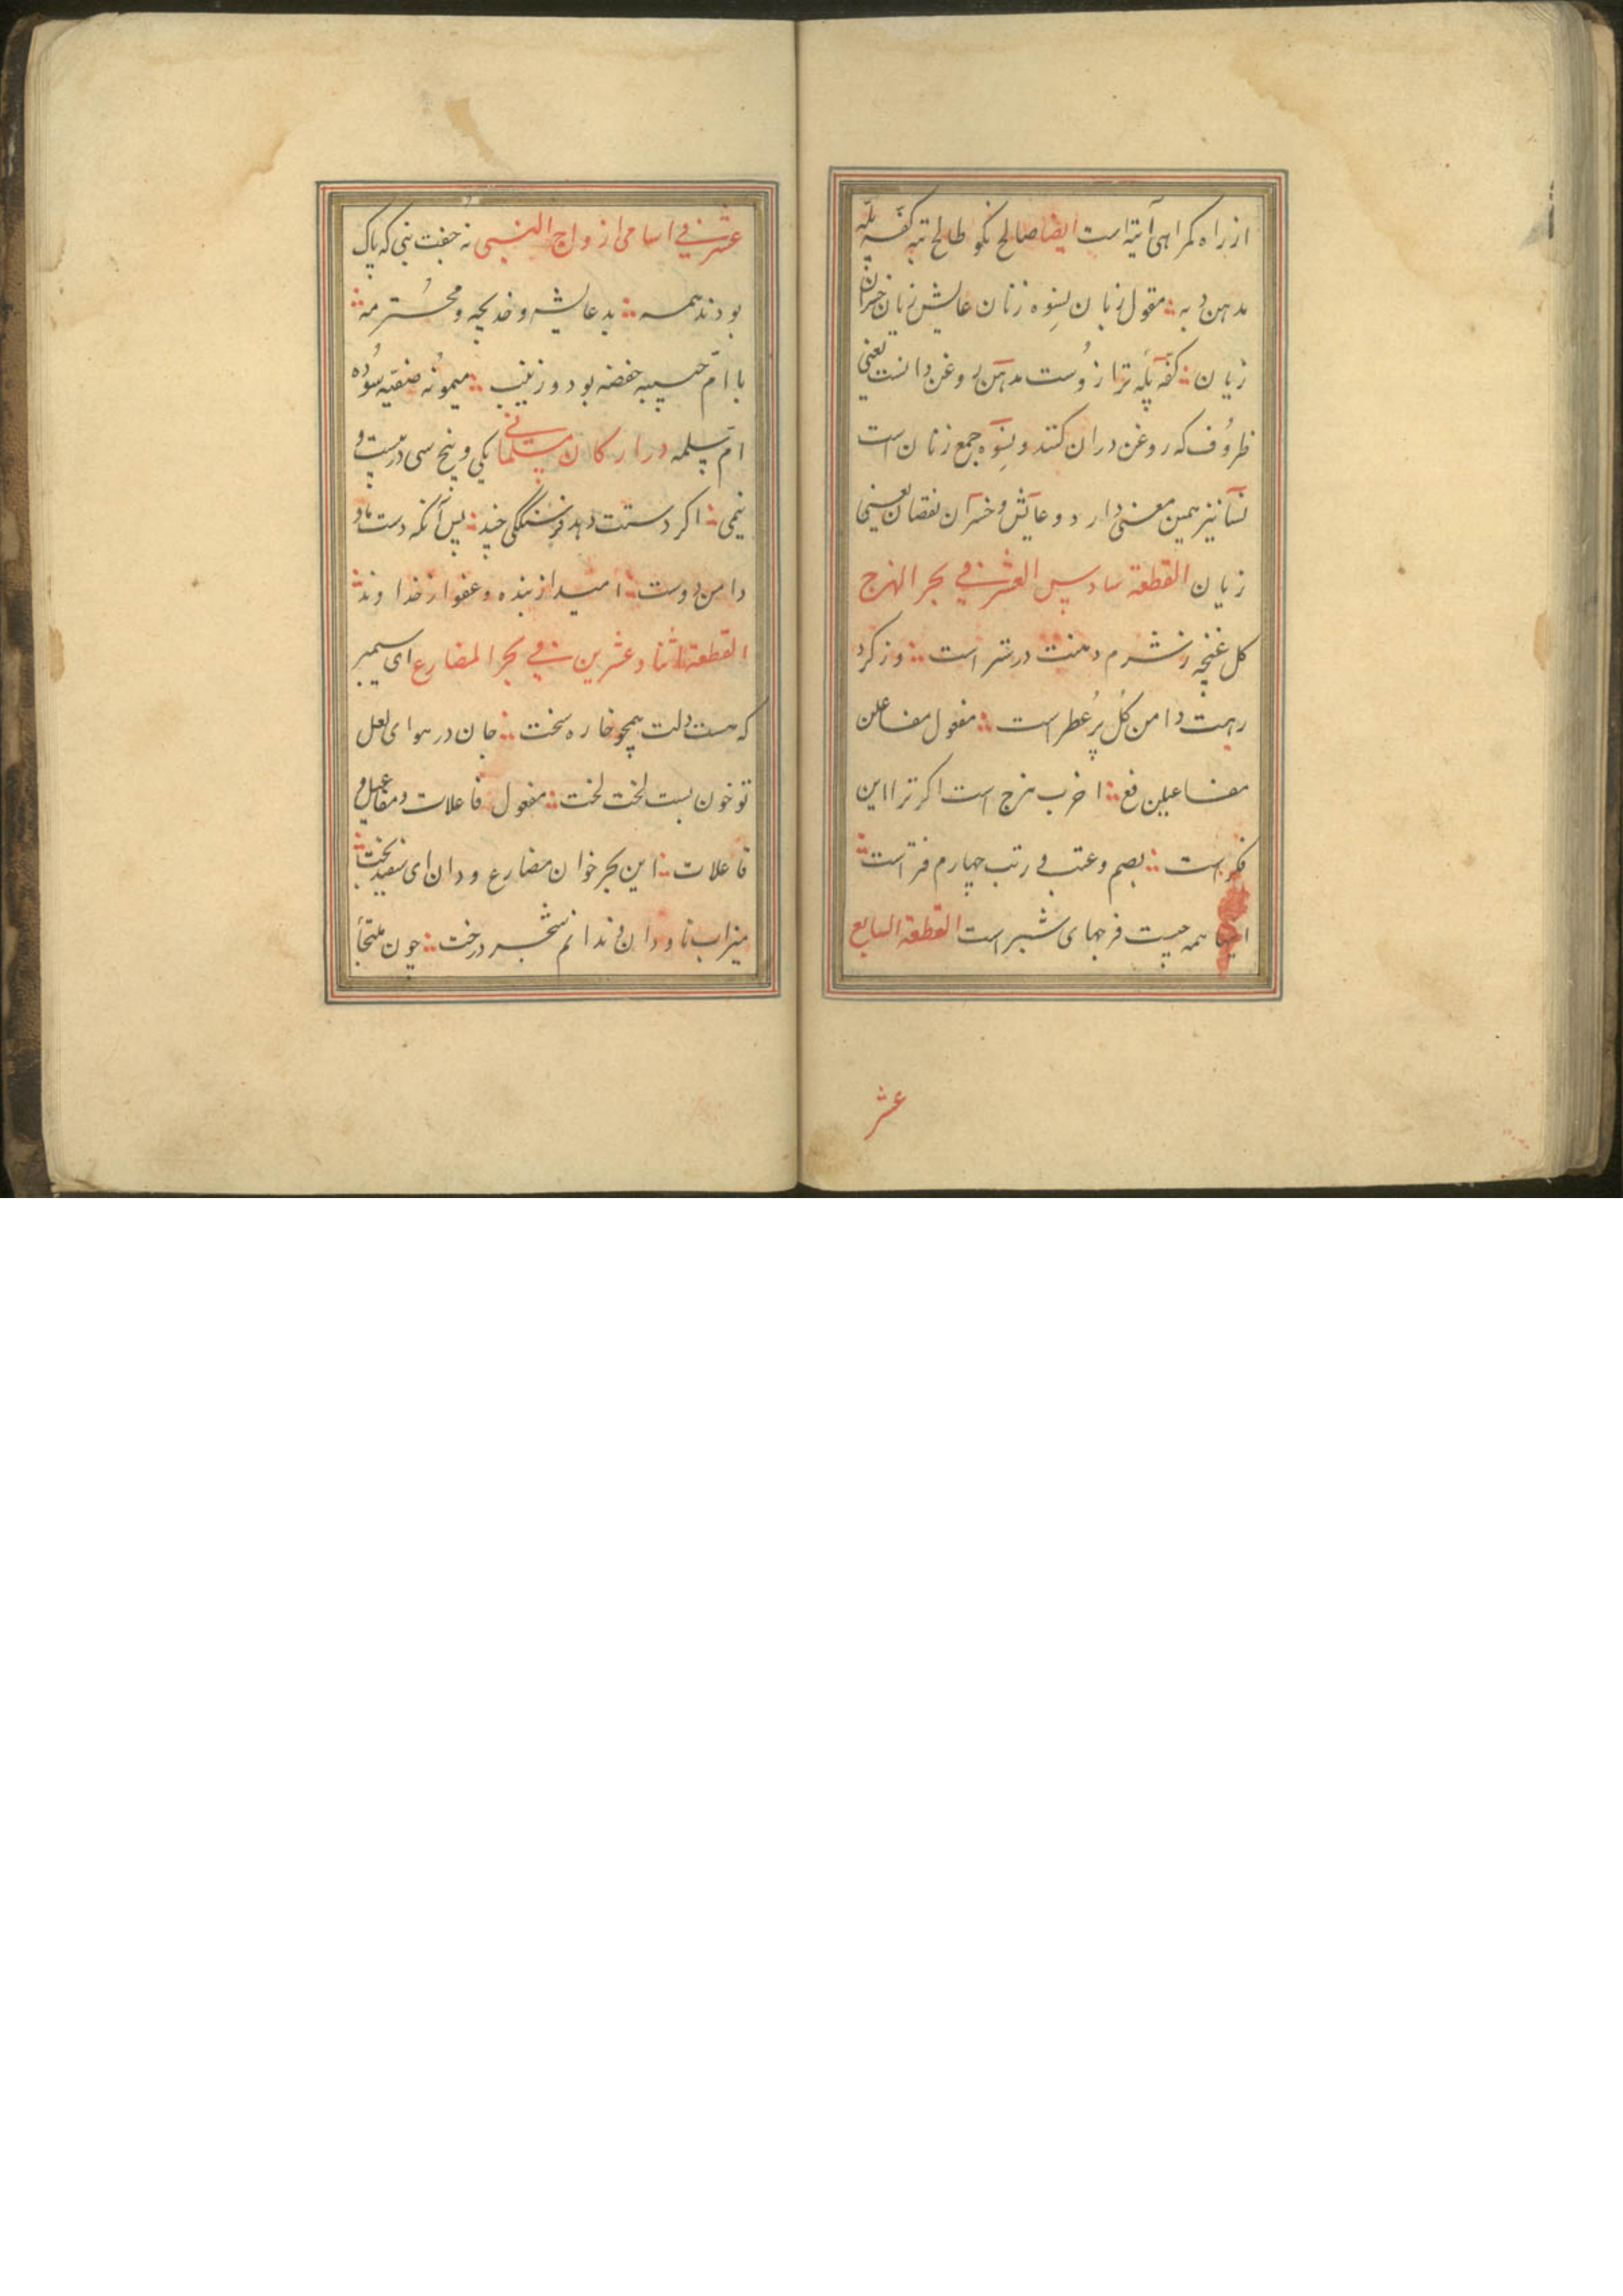 از راه کمراهی آیته است ایضا صالح نکو طالح تبه کفّه پلّه
مدهن دبه مقول زبان نِسوه زنان عایش زیان خسران
زیان کفّه پلّه ترازوُست مدهن روغن دانست یعنی
ظروُف که روغن دران کنند و نِسوَه جمع زنان است
نسآ نیز همین معنی دارد و عایش و خسرآن نقصان یعنی
زیان القطعة سادس العشر فی بحر الهزج
کل غنچه ز شرم دهنت در ستر است وز کرد
رهت دامن کُل پرُ عطر است مفعول مفاعلن
مفاعیلن فع اخرب هزج است اکر ترا این
فکر است بصم و عتب و رتب چهارم فتر است
اینها همه چیست فرجهای شبر است القطعة السابع
عشر
عشر فی اسامی ازواج النبی نه جفت نبی که پاک
بودند همه بد عایشه و خدیجه و محُترمه
با امّ حبیبه حفصه بود و زینب میمونُه صفیّه سوُده
امّ سلمه در ارکان مسلمانی یکی و پنج سی در بیست و
نیمی اکر دستت دهد فرسنکی چند پس آنکه دست ما و
دامن دوست امید از بنده و عفو از خداوند
القطعة اثناد عشرین فی بحر المضارع ای سیمبر
که هست دلت همچو خاره سخت جان در هوای لعل
تو خون بست لخت لخت مفعول فاعلات و مفاعیل و
فاعلات این بحر خوان مضارع و دان ای سفید بخت
میزاب ناودان و ندانم شجر درخت چون ملتجأ